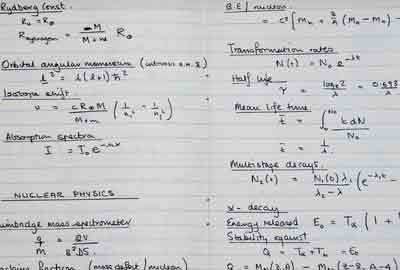 Rydberg Const.
R∞ = R∞
R hydrogen = M / M+m R∞
Orbital angular momentum
l² = l(l+1)ħ²
Isotope shift.
υ = cR∞M / M+m (1/n₁² - 1/n₂²)
Absorption spectra
I = I₀e
NUCLEAR PHYSICS
mass spectrometer
q/M =
fraction (mass defect/nucleon)
B.E / nucleon
= c² [ Mn + (Mn - Mn) -
Transformation rates
N(t) = N₀ e^-λt
Half life
τ = loge2 / λ = 0.693
Mean life time
t̄ = ∫ t dN / N₀
t̄ = 1/λ
Multistage decays.
N₂(t) = N₁(0) λ₁ / λ₂ - λ (e^-λ₁t -
α - decay
Energy released E₀ = Tα (1 +
Stability against
Q = Tα + Th = E₀
Q = Mn(Z,A) - Mn(Z-2, A-4)